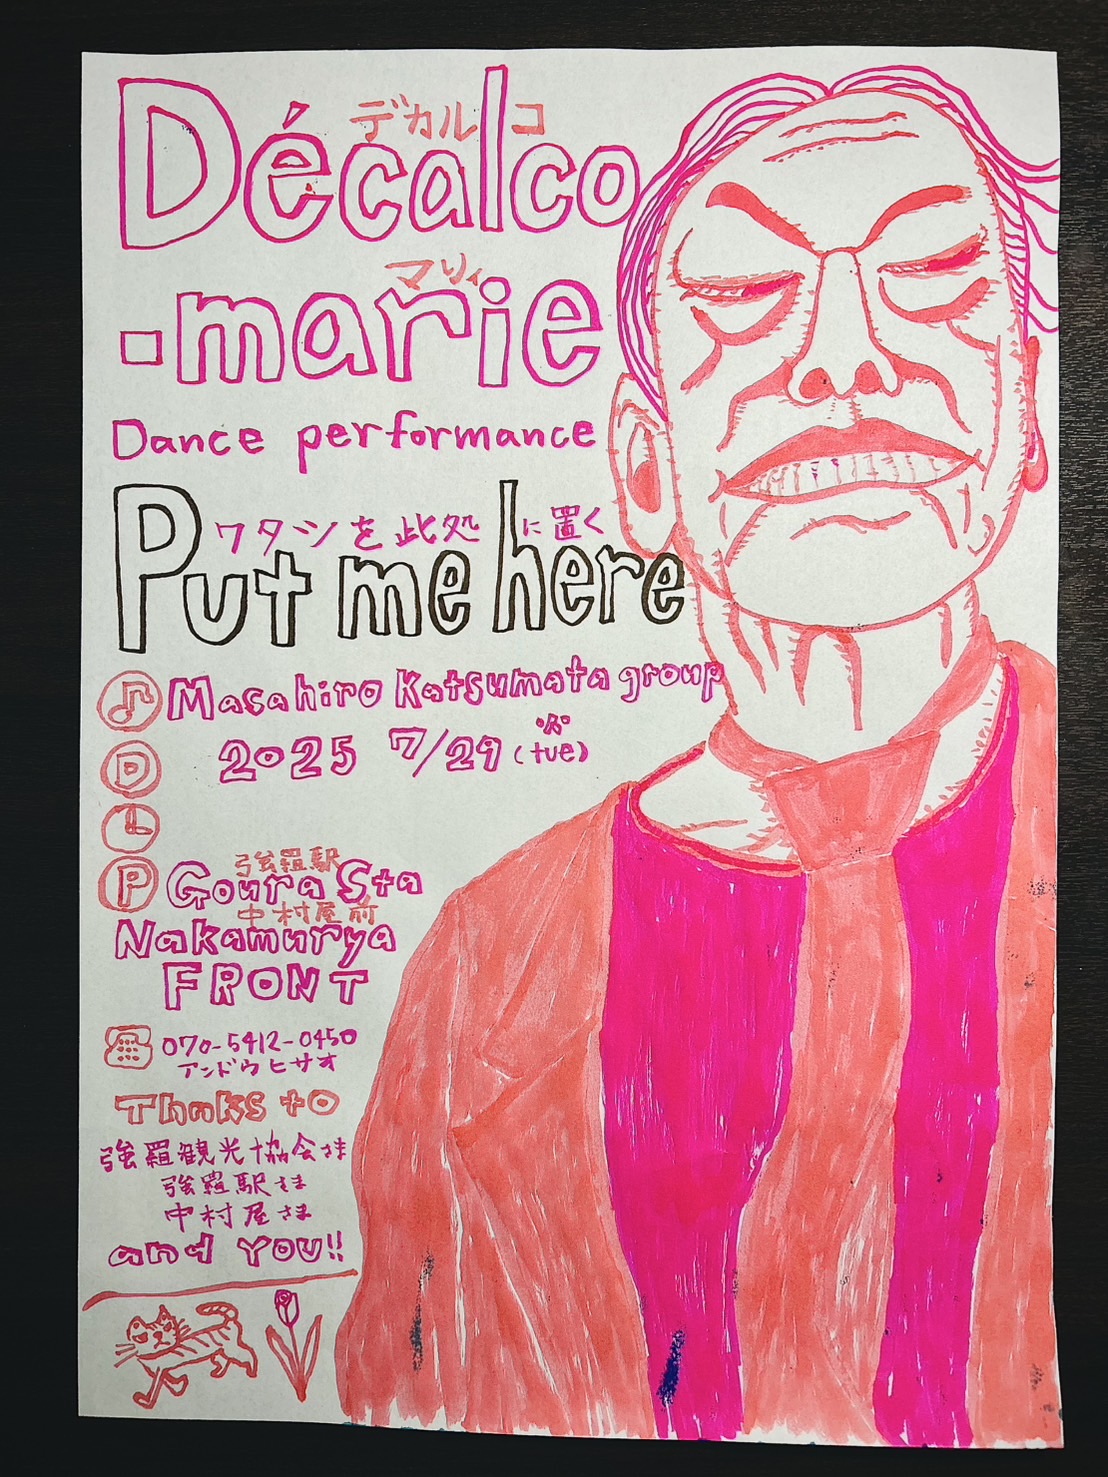 デカルコ
Décalco
マリィ
-marie
Dance performance
ワタシを此処に置く
Put me here
Masahiro Katsumata group
2025 7/29 (tue)
D
P
強羅駅
Goura Sta
中村屋前
Nakamurya
FRONT
070-5412-0450
アンドウヒサオ
Thnks to
強羅観光協会さま
強羅駅さま
中村屋さま
and You!!